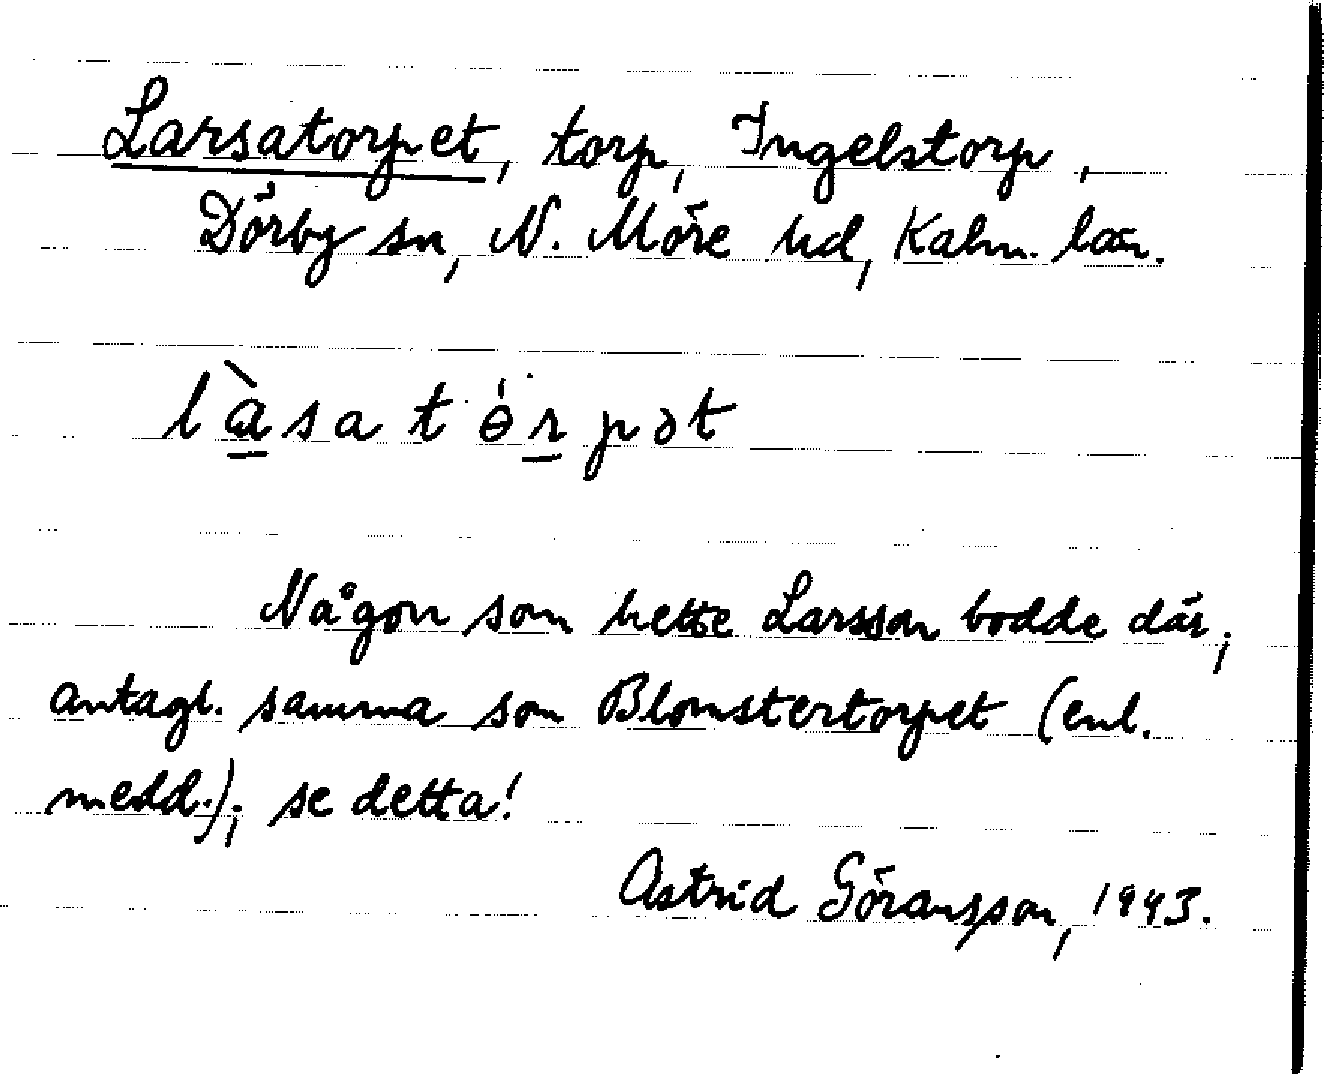 Larsatorpet, torp, Ingelstorp,
Dörby sn, N. Möre hd, Kalm. län.
là̱satɵ́ṟpət
Någon som hette Larsson bodde där,
antagl. samma som Blomstertorpet (enl.
medd.); se detta!
Astrid Göransson, 1943.